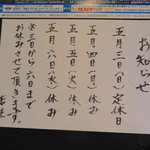 お知らせ
五月三日（日）定休日
五月四日（月）休み
五月五日（火）休み
五月六日（水）休み
※三日から六日まで
お休みさせて頂きます。
READY